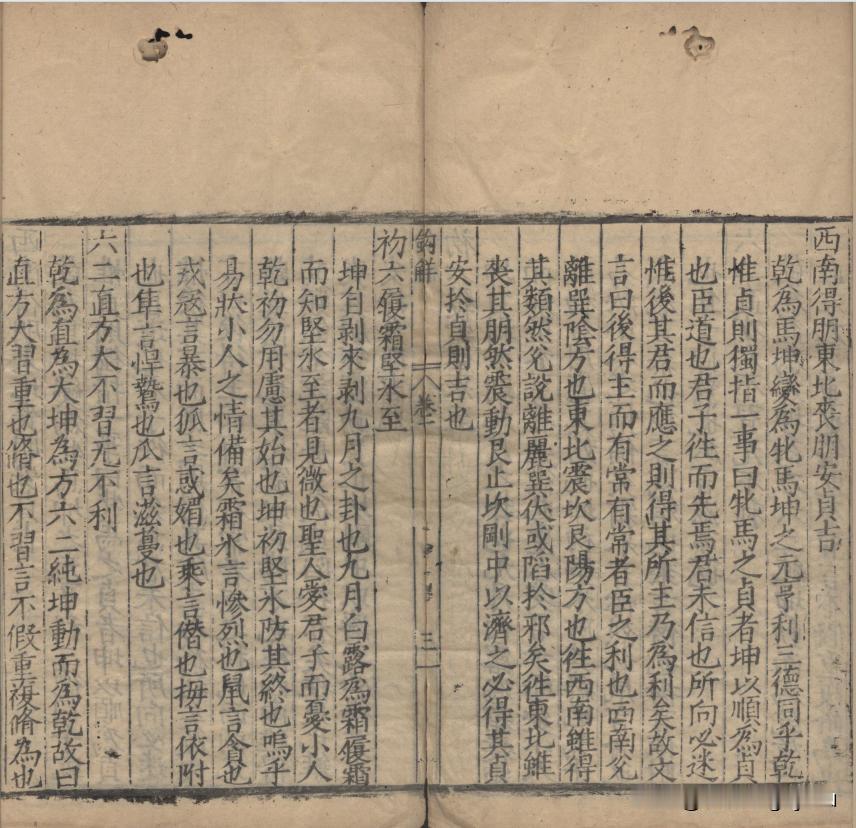 西南得朋東北喪朋安貞吉
乾爲馬坤變爲牝馬坤之元亨利三德同乎乾
惟貞則獨指一事曰牝馬之貞者坤以順爲貞
也臣道也君子徃而先焉君未信也所向必迷
惟後其君而應之則得其所主乃爲利矣故文
言曰後得主而有常有常者臣之利也西南兊
離巽陰方也東北震坎艮陽方也徃西南雖得
其類然兊說離麗巽伏或陷於邪矣徃東北雖
喪其朋然震動艮止坎剛中以濟之必得其貞
安於貞則吉也
鈎解
卷二
三
初六履霜堅氷至
坤自剥來剥九月之卦也九月白露爲霜履霜
而知堅氷至者見微也聖人愛君子而憂小人
乾初勿用慮其始也坤初堅氷防其終也嗚乎
易狀小人之情備矣霜氷言慘烈也鼠言貪也
戎寇言暴也狐言惑媚也乘言僭也拇言依附
也隼言悍鷙也瓜言滋蔓也
六二直方大不習无不利
乾爲直爲大坤爲方六二純坤動而爲乾故曰
直方大習重也脩也不習言不假重複脩爲也